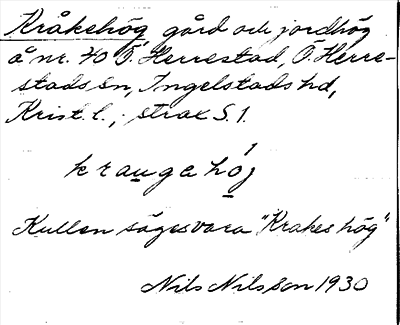 Kråkehög gård och jordhög
å nr. 40 Ö. Herrestad, Ö. Herre-
stads sn, Ingelstads hd,
Krist. l., strax S. 1.
kraugahöj
Kullen säges vara "Krakes hög"
Nils Nilsson 1930